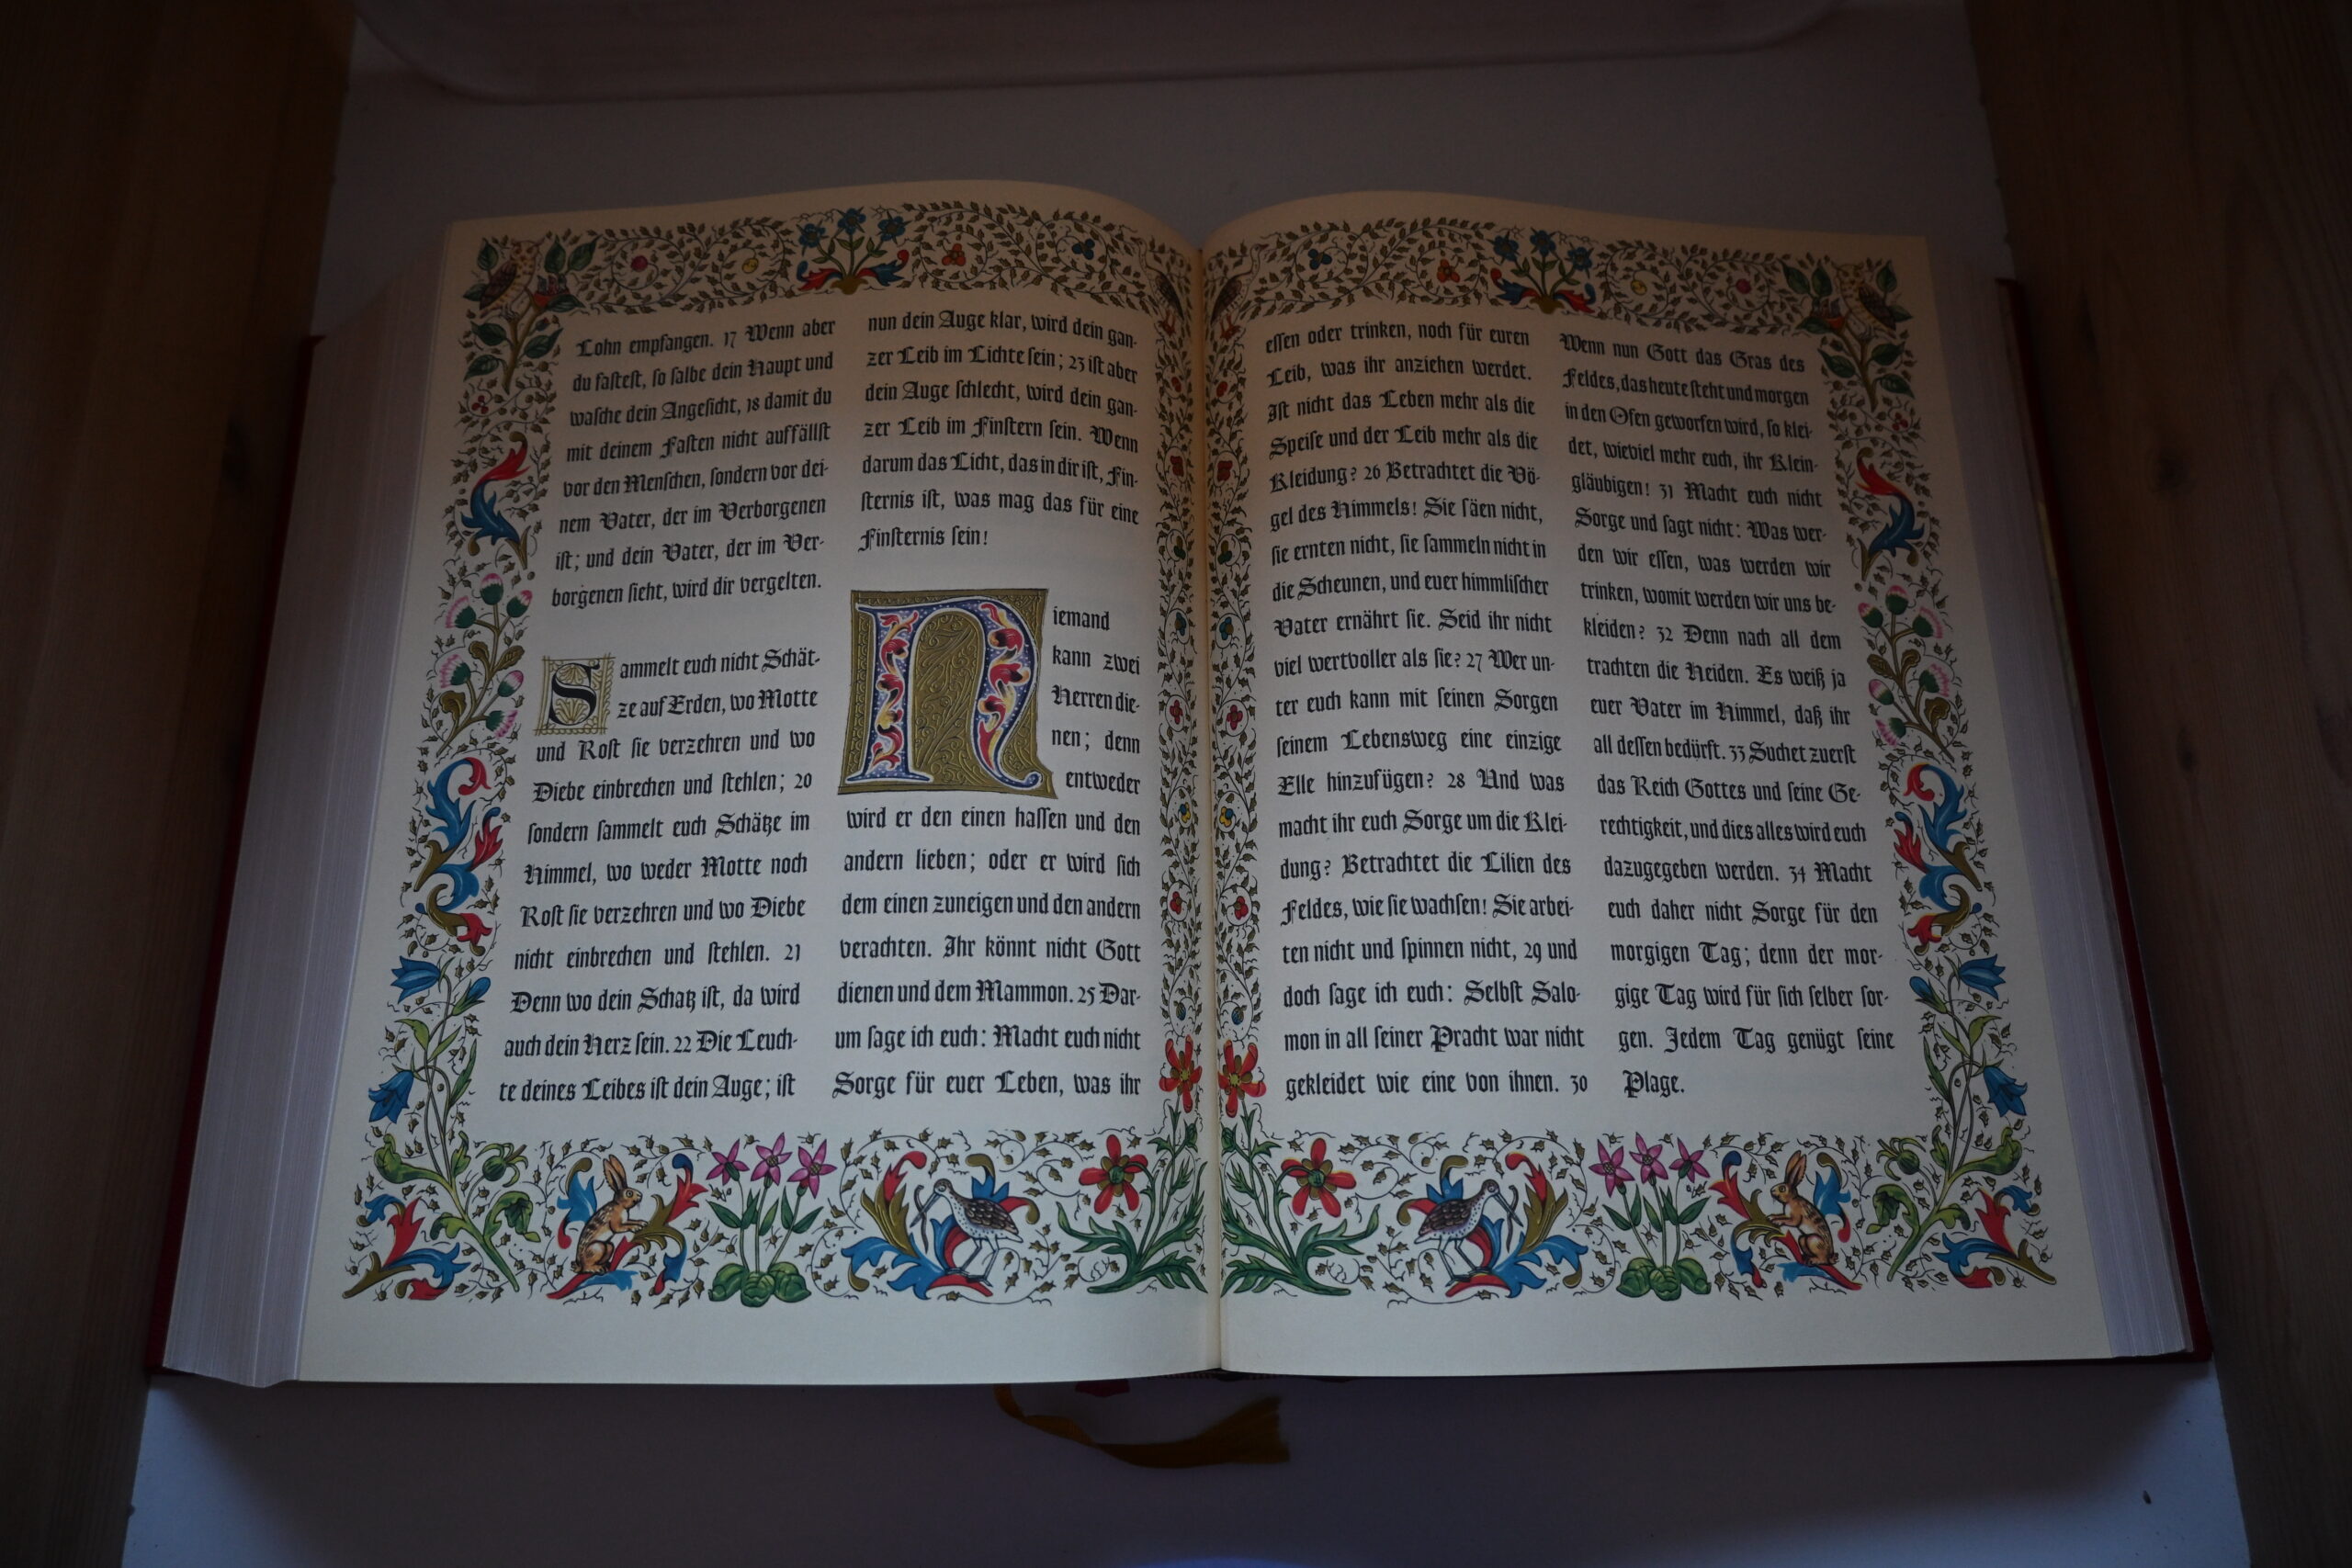 Lohn empfangen. 17 Wenn aber
du fastest, so salbe dein Haupt und
wasche dein Angesicht, 18 damit du
mit deinem Fasten nicht auffällst
vor den Menschen, sondern vor dei-
nem Vater, der im Verborgenen
ist; und dein Vater, der im Ver-
borgenen sieht, wird dir vergelten.
Sammelt euch nicht Schät-
ze auf Erden, wo Motte
und Rost sie verzehren und wo
Diebe einbrechen und stehlen; 20
sondern sammelt euch Schätze im
Himmel, wo weder Motte noch
Rost sie verzehren und wo Diebe
nicht einbrechen und stehlen. 21
Denn wo dein Schatz ist, da wird
auch dein Herz sein. 22 Die Leuch-
te deines Leibes ist dein Auge; ist
nun dein Auge klar, wird dein gan-
zer Leib im Lichte sein; 23 ist aber
dein Auge schlecht, wird dein gan-
zer Leib im Finstern sein. Wenn
darum das Licht, das in dir ist, Fin-
sternis ist, was mag das für eine
Finsternis sein!
Niemand
kann zwei
Herren die-
nen; denn
entweder
wird er den einen hassen und den
andern lieben; oder er wird sich
dem einen zuneigen und den andern
verachten. Ihr könnt nicht Gott
dienen und dem Mammon. 25 Dar-
um sage ich euch: Macht euch nicht
Sorge für euer Leben, was ihr
essen oder trinken, noch für euren
Leib, was ihr anziehen werdet.
Ist nicht das Leben mehr als die
Speise und der Leib mehr als die
Kleidung? 26 Betrachtet die Vö-
gel des Himmels! Sie säen nicht,
sie ernten nicht, sie sammeln nicht in
die Scheunen, und euer himmlischer
Vater ernährt sie. Seid ihr nicht
viel wertvoller als sie? 27 Wer un-
ter euch kann mit seinen Sorgen
seinem Lebensweg eine einzige
Elle hinzufügen? 28 Und was
macht ihr euch Sorge um die Klei-
dung? Betrachtet die Lilien des
Feldes, wie sie wachsen! Sie arbei-
ten nicht und spinnen nicht, 29 und
doch sage ich euch: Selbst Salo-
mon in all seiner Pracht war nicht
gekleidet wie eine von ihnen. 30
Wenn nun Gott das Gras des
Feldes, das heute steht und morgen
in den Ofen geworfen wird, so klei-
det, wieviel mehr euch, ihr Klein-
gläubigen! 31 Macht euch nicht
Sorge und sagt nicht: Was wer-
den wir essen, was werden wir
trinken, womit werden wir uns be-
kleiden? 32 Denn nach all dem
trachten die Heiden. Es weiß ja
euer Vater im Himmel, daß ihr
all dessen bedürft. 33 Suchet zuerst
das Reich Gottes und seine Ge-
rechtigkeit, und dies alles wird euch
dazugegeben werden. 34 Macht
euch daher nicht Sorge für den
morgigen Tag; denn der mor-
gige Tag wird für sich selber sor-
gen. Jedem Tag genügt seine
Plage.